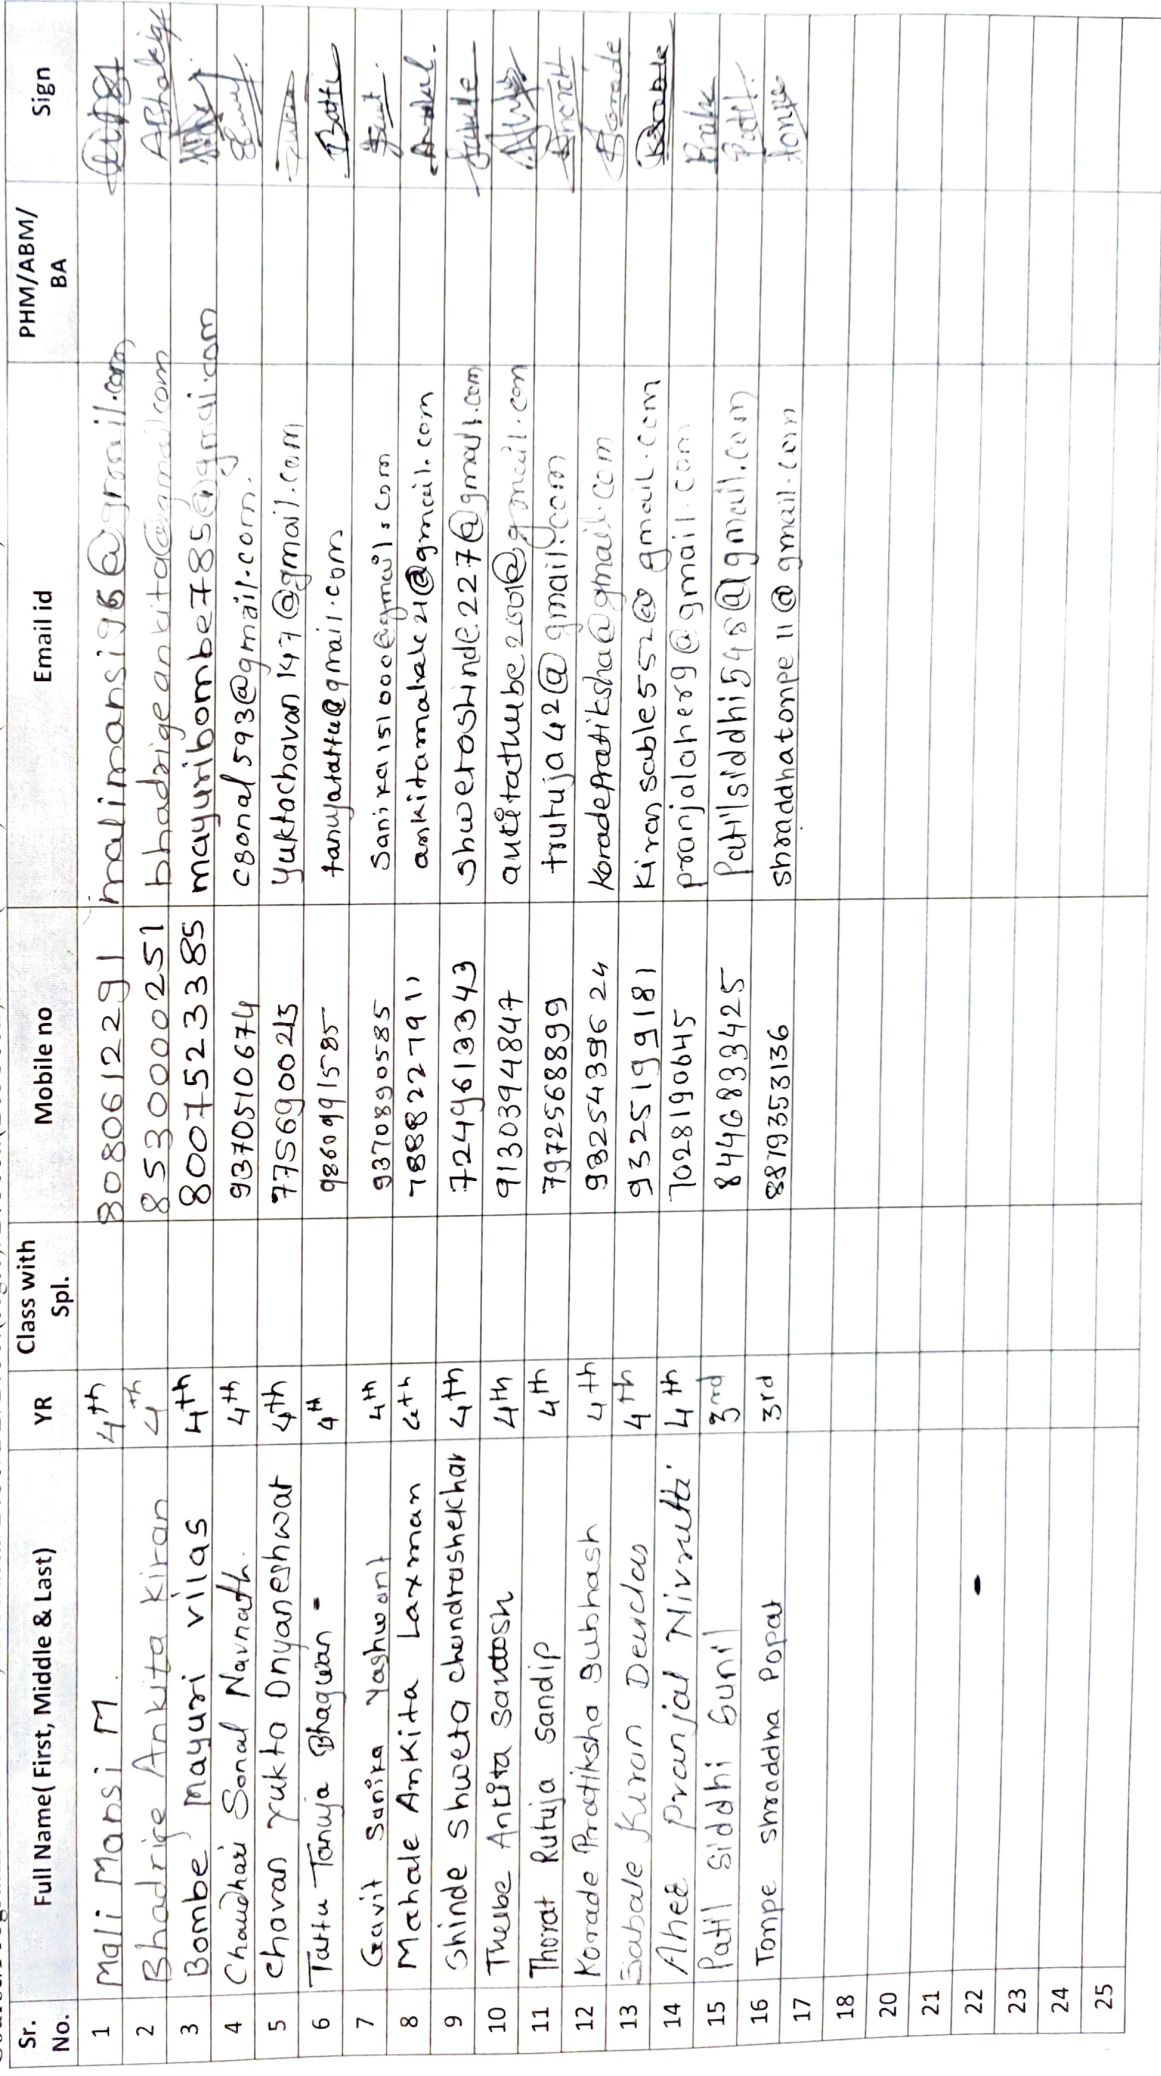 Sr. No. Full Name( First, Middle & Last) YR Class with Spl. Mobile no Email id PHM/ABM/ BA Sign
1 Mali Mansi M. 4th 8080612291 malimansi96@gmail.com
2 Bhadrige Ankita Kiran 4th 8530000251 bhadrigeankita@gmail.com
3 Bombe Mayuri vilas 4th 8007523385 mayuribombe785@gmail.com
4 Chaudhari Sonal Navnath. 4th 9370510674 csonal593@gmail.com.
5 Chavan Yukta Dnyaneshwar 4th 7756900215 Yuktachavan147@gmail.com
6 Tattu Tanuja Bhagwan - 4th 9860991585 tanujatattu@gmail.com Tattu
7 Gavit Sanika Yashwant 4th 9370890585 Sanika151000@gmail.com
8 Mahale Ankita Laxman 4th 7888227911 ankitamahale21@gmail.com
9 Shinde Shweta chandrashekhar 4th 7249613343 shwetashinde227@gmail.com
10 Thube Ankita Santosh 4th 9130394847 ankitathube2001@gmail.com
11 Thorat Rutuja Sandip 4th 7972568899 trutuja42@gmail.com
12 Korade Pratiksha Subhash 4th 9325439624 KoradePratiksha@gmail.com Korade
13 Sabale Kiran Devidas 4th 9325199181 Kiransable552@gmail.com
14 Aher Pranjal Nivrutti 4th 7028190645 pranjalaher9@gmail.com
15 Patil Siddhi Sunil 3rd 8446833425 Patilsiddhi548@gmail.com Patil
16 Tonpe Shraddha Popat 3rd 8879353136 shraddhatonpe11@gmail.com Tonpe
17
18
20
21
22
23
24
25